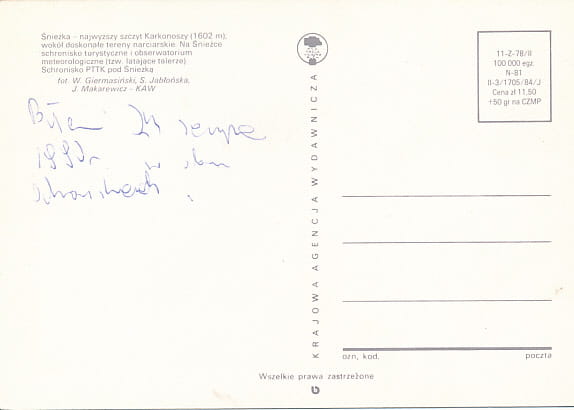 Śnieżka – najwyższy szczyt Karkonoszy (1602 m),
wokół doskonałe tereny narciarskie. Na Śnieżce
schronisko turystyczne i obserwatorium
meteorologiczne (tzw. latające talerze)
Schronisko PTTK pod Śnieżką
fot. W. Giermasiński, S. Jabłońska,
J. Makarewicz - KAW
24
w
KRAJOWA AGENCJA WYDAWNICZA
11-Z-78/II
100 000 egz.
N-81
II-3/1705/84/J
Cena zł 11,50
+50 gr na CZMP
ozn. kod.
poczta
Wszelkie prawa zastrzeżone